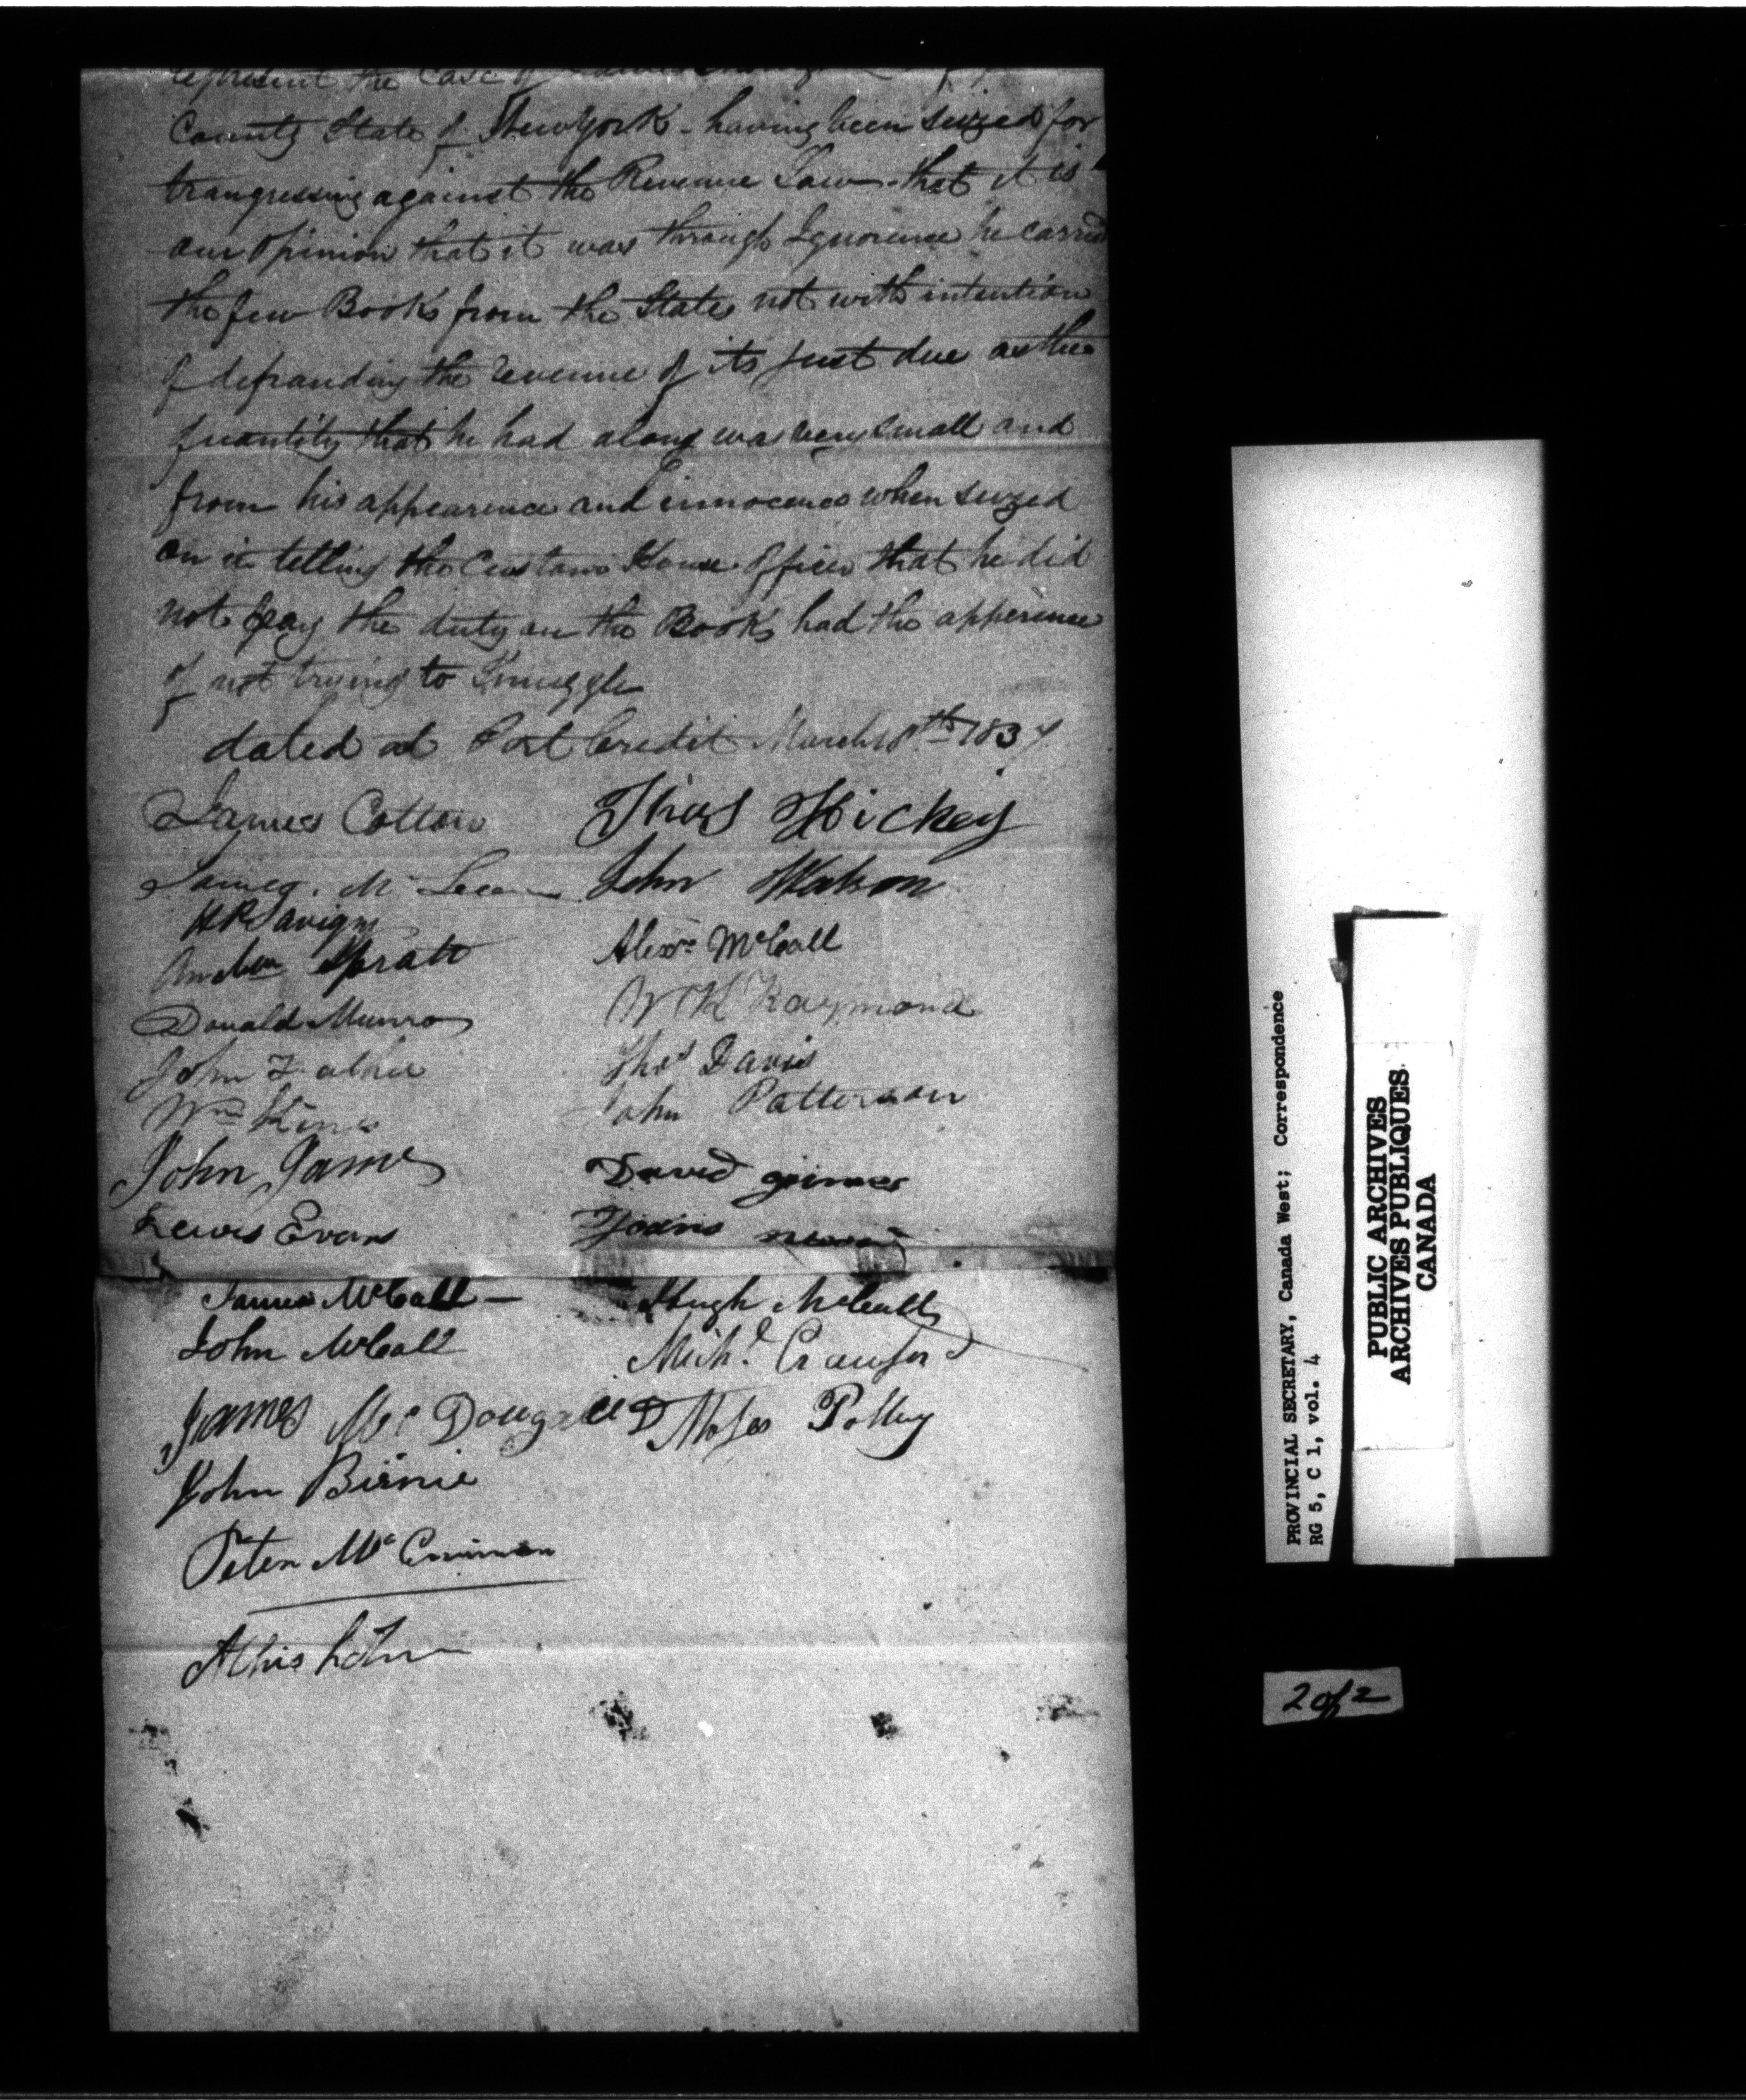 represent the Case of
County State of New York - having been seized for
trangressing against the Revenue Law - that it is
our Opinion that it was through Ignorence he carried
the few Books from the States not with intention
of defrauding the revenue of its just due as the
quantity that he had along was very small and
from his appearence and innocence when seized
on in telling the Custom House Officer that he did
not pay the duty on the Books had the apperence
of not trying to Smuggle
dated at Port Credit March 18th 1837
James Cotton Thos Hickey
James Mc John Watson
Alexr McCall
Andrew Spratt
Donald Munro W K Raymond
John Thos Davis
Wm King John Patterson
John James David
Lewis Evans
James McCall - Hugh McCall
John McCall Michl Crawford
James Mc Dougall Moses Polley
John Birnie
Peter Mc
AChisholm
PROVINCIAL SECRETARY, Canada West; Correspondence
RG 5, C 1, vol. 4
PUBLIC ARCHIVES
ARCHIVES PUBLIQUES
CANADA
2 of 2